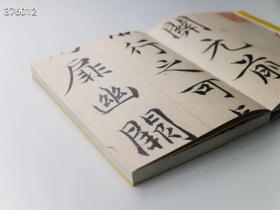 376012
開元前
行之可
扉幽關